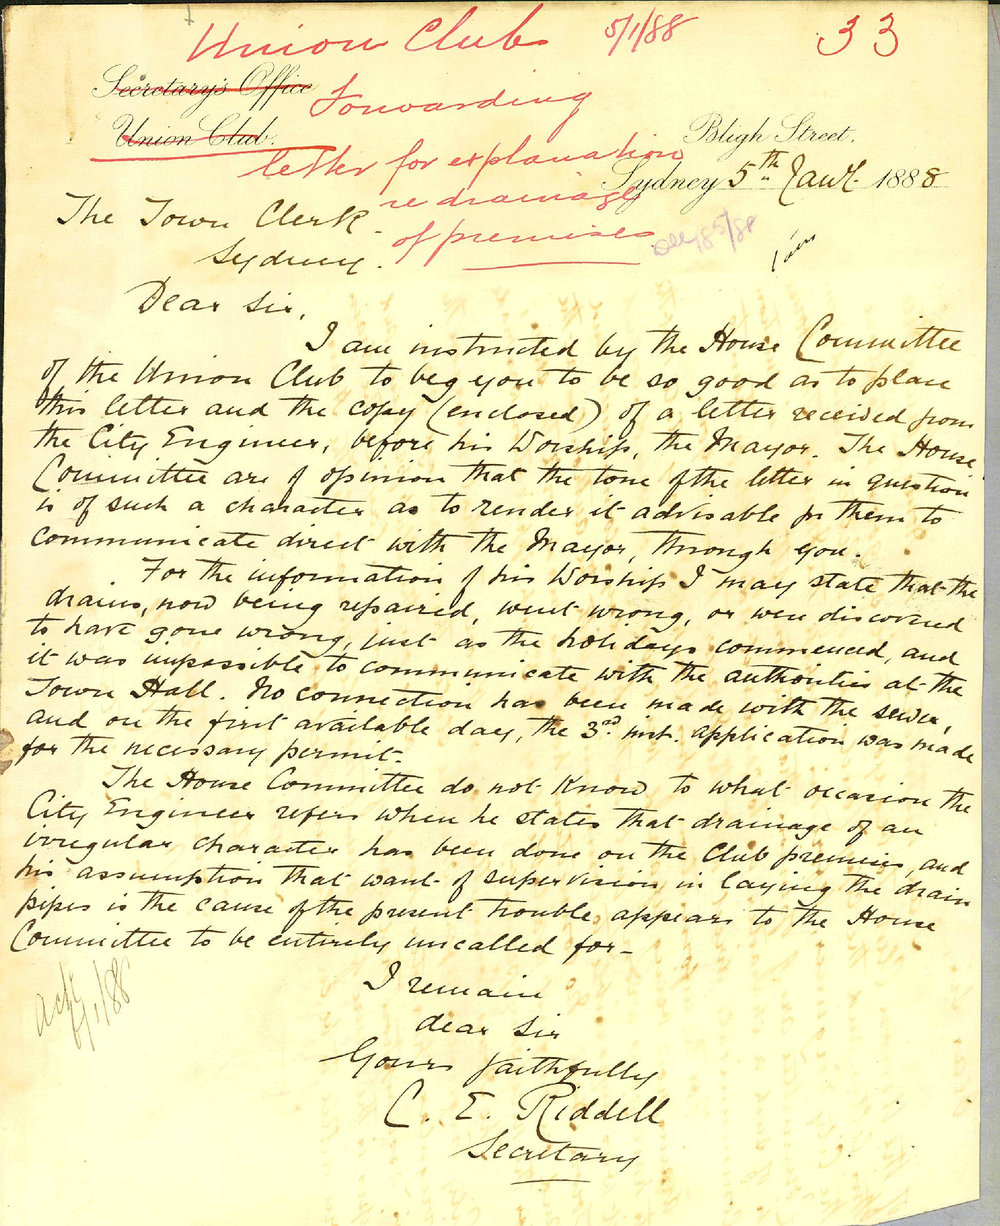 Union Club 5/1/88 33
Secretary's Office Forwarding
Union Club. Bligh Street.
letter for explanation
Sydney 5th Jany. 1888
re drainage
The Town Clerk
of premises
Sydney.
Dear Sir,
I am instructed by the House Committee
of the Union Club to beg you to be so good as to place
this letter and the copy (enclosed) of a letter received from
the City Engineer, before his Worship, the Mayor. The House
Committee are of opinion that the tone of the letter in question
is of such a character as to render it advisable for them to
communicate direct with the Mayor, through you.
For the information of his Worship I may state that the
drains, now being repaired, went wrong, or were discovered
to have gone wrong, just as the holidays commenced, and
it was impossible to communicate with the authorities at the
Town Hall. No connection has been made with the sewer,
and on the first available day, the 3rd. inst. application was made
for the necessary permit.
The House Committee do not know to what occasion the
City Engineer refers when he states that drainage of an
irregular character has been done on the Club premises, and
his assumption that want of supervision in laying the drain
pipes is the cause of the present trouble appears to the House
Committee to be entirely uncalled for -
I remain
dear Sir
Yours faithfully
C. E. Riddell
Secretary